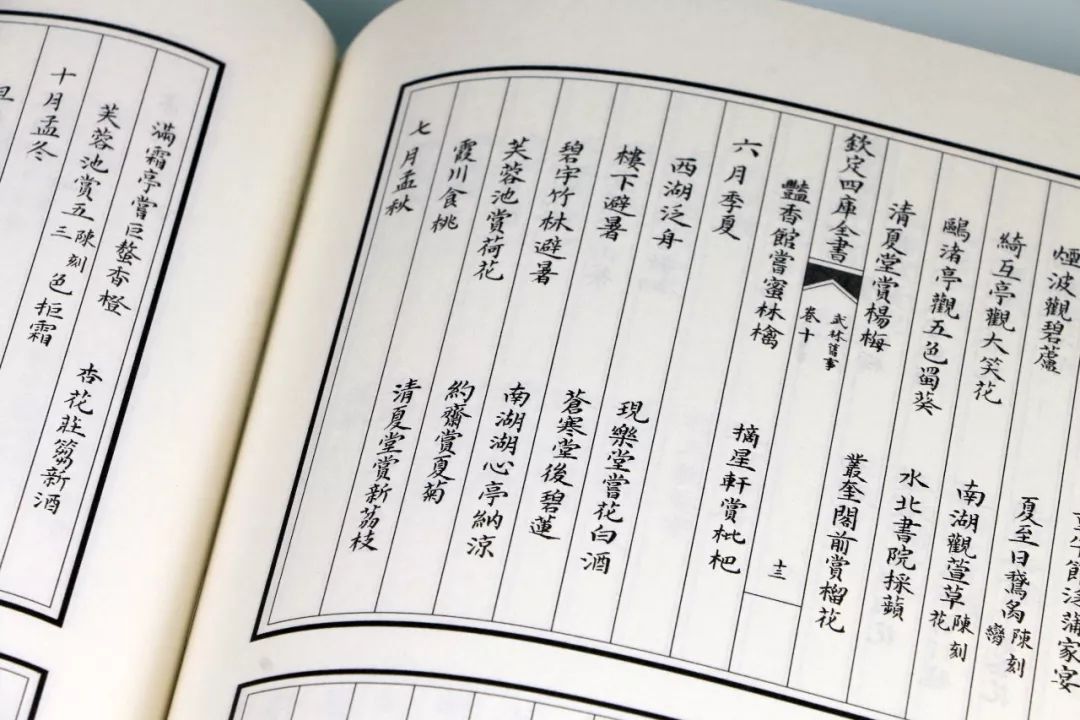 館泛蒲家宴
煙波觀碧蘆 夏至日鵝 陳刻
綺互亭觀大笑花 南湖觀萱草 陳刻花
鷗渚亭觀五色蜀葵 水北書院採蘋
清夏堂賞楊梅 叢奎閣前賞榴花
欽定四庫全書 武林舊事 卷十 十三
豔香館嘗蜜林檎 摘星軒賞枇杷
六月季夏
西湖泛舟 現樂堂嘗花白酒
樓下避暑 蒼寒堂後碧蓮
碧宇竹林避暑 南湖湖心亭納涼
芙蓉池賞荷花 約齋賞夏菊
霞川食桃 清夏堂賞新荔枝
七月孟秋
滿霜亭嘗巨螯香橙 杏花莊篘新酒
芙蓉池賞五陳刻三色拒霜
十月孟冬